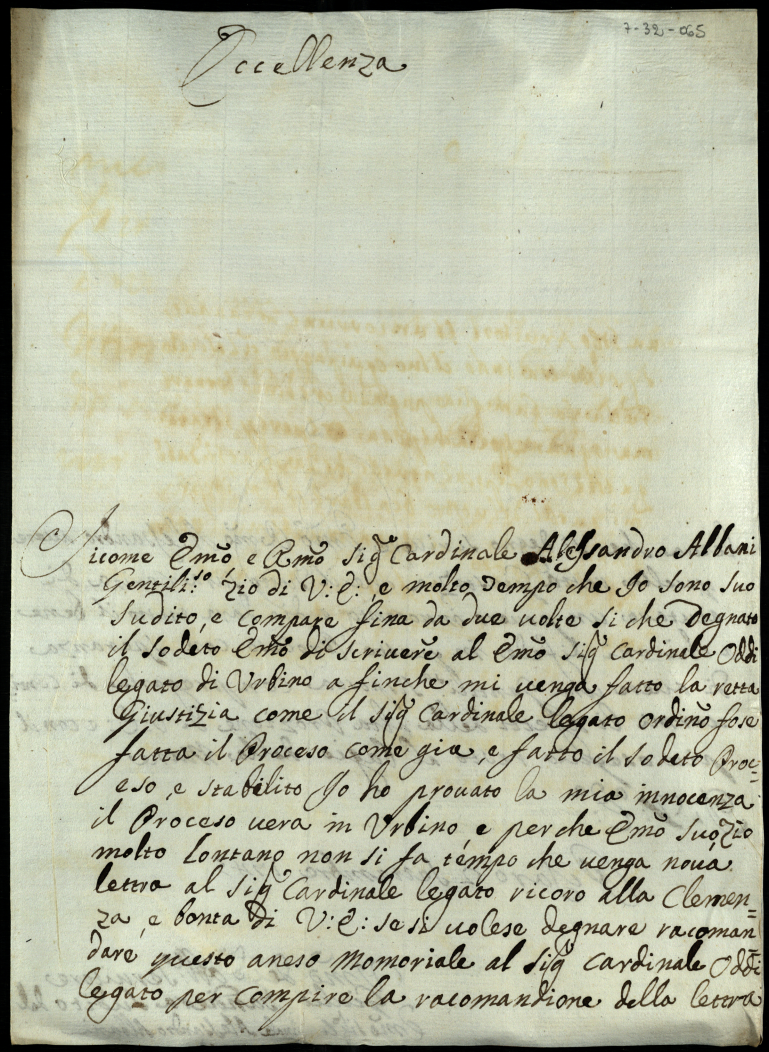 7-32-065
Eccellenza
Sicome Emo e Rmo Sigr Cardinale Alessandro Albani
Gentili:o Zio di V: E: e molto Tempo che Io sono suo
sudito, e compare fina da due volte si che Degnato
il sodeto Emo di scrivere al Emo Sigr Cardinale Oddi
legato di Urbino a finche mi venga fatto la retta
Giustizia come il Sigr Cardinale legato ordino fose
fatta il Proceso come gia, e fatto il sodeto Proc=
eso, e stabilito Io ho provato la mia innocenza
il Proceso vera in Urbino, e perche Emo suo Zio
molto Lontano non si fa tempo che venga nova
lettra al Sigr Cardinale legato ricoro alla Clemen=
za, e bonta di V: E: se si volese degnare racoman=
dare questo aneso Memoriale al Sigr Cardinale Oddi
legato per compire la racomandione della lettra